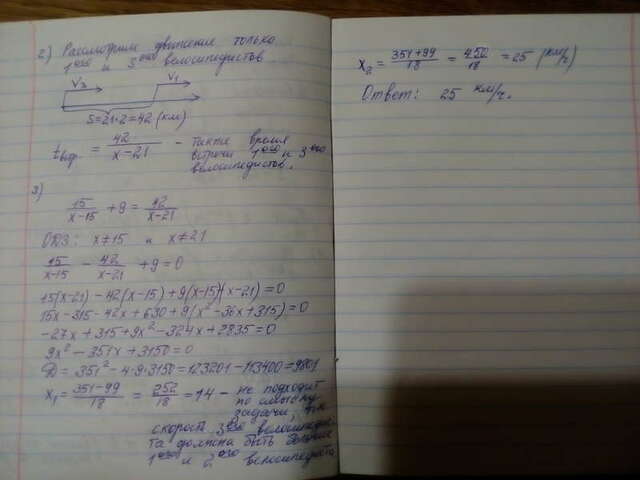 2) Рассмотрим движение только
1ого и 3его велосипедистов
V3 V1
S=21·2=42 (км)
tвыр. = 42/(x-21) - такте время
встречи 1ого и 3его
велосипедистов.
3)
15/(x-15) + 9 = 42/(x-21)
ОДЗ: x≠15 и x≠21
15/(x-15) - 42/(x-21) + 9 = 0
15(x-21) - 42(x-15) + 9(x-15)(x-21) = 0
15x - 315 - 42x + 630 + 9(x² - 36x + 315) = 0
-27x + 315 + 9x² - 324x + 2835 = 0
9x² - 351x + 3150 = 0
D = 351² - 4·9·3150 = 123201 - 113400 = 9801
x1 = (351-99)/18 = 252/18 = 14 - не подходит
по смыслу
задачи, т.к
скорость 3его велосипедис
та должна быть больше
1ого и 2ого велосипедиста
x2 = (351+99)/18 = 450/18 = 25 (км/ч)
Ответ: 25 км/ч.